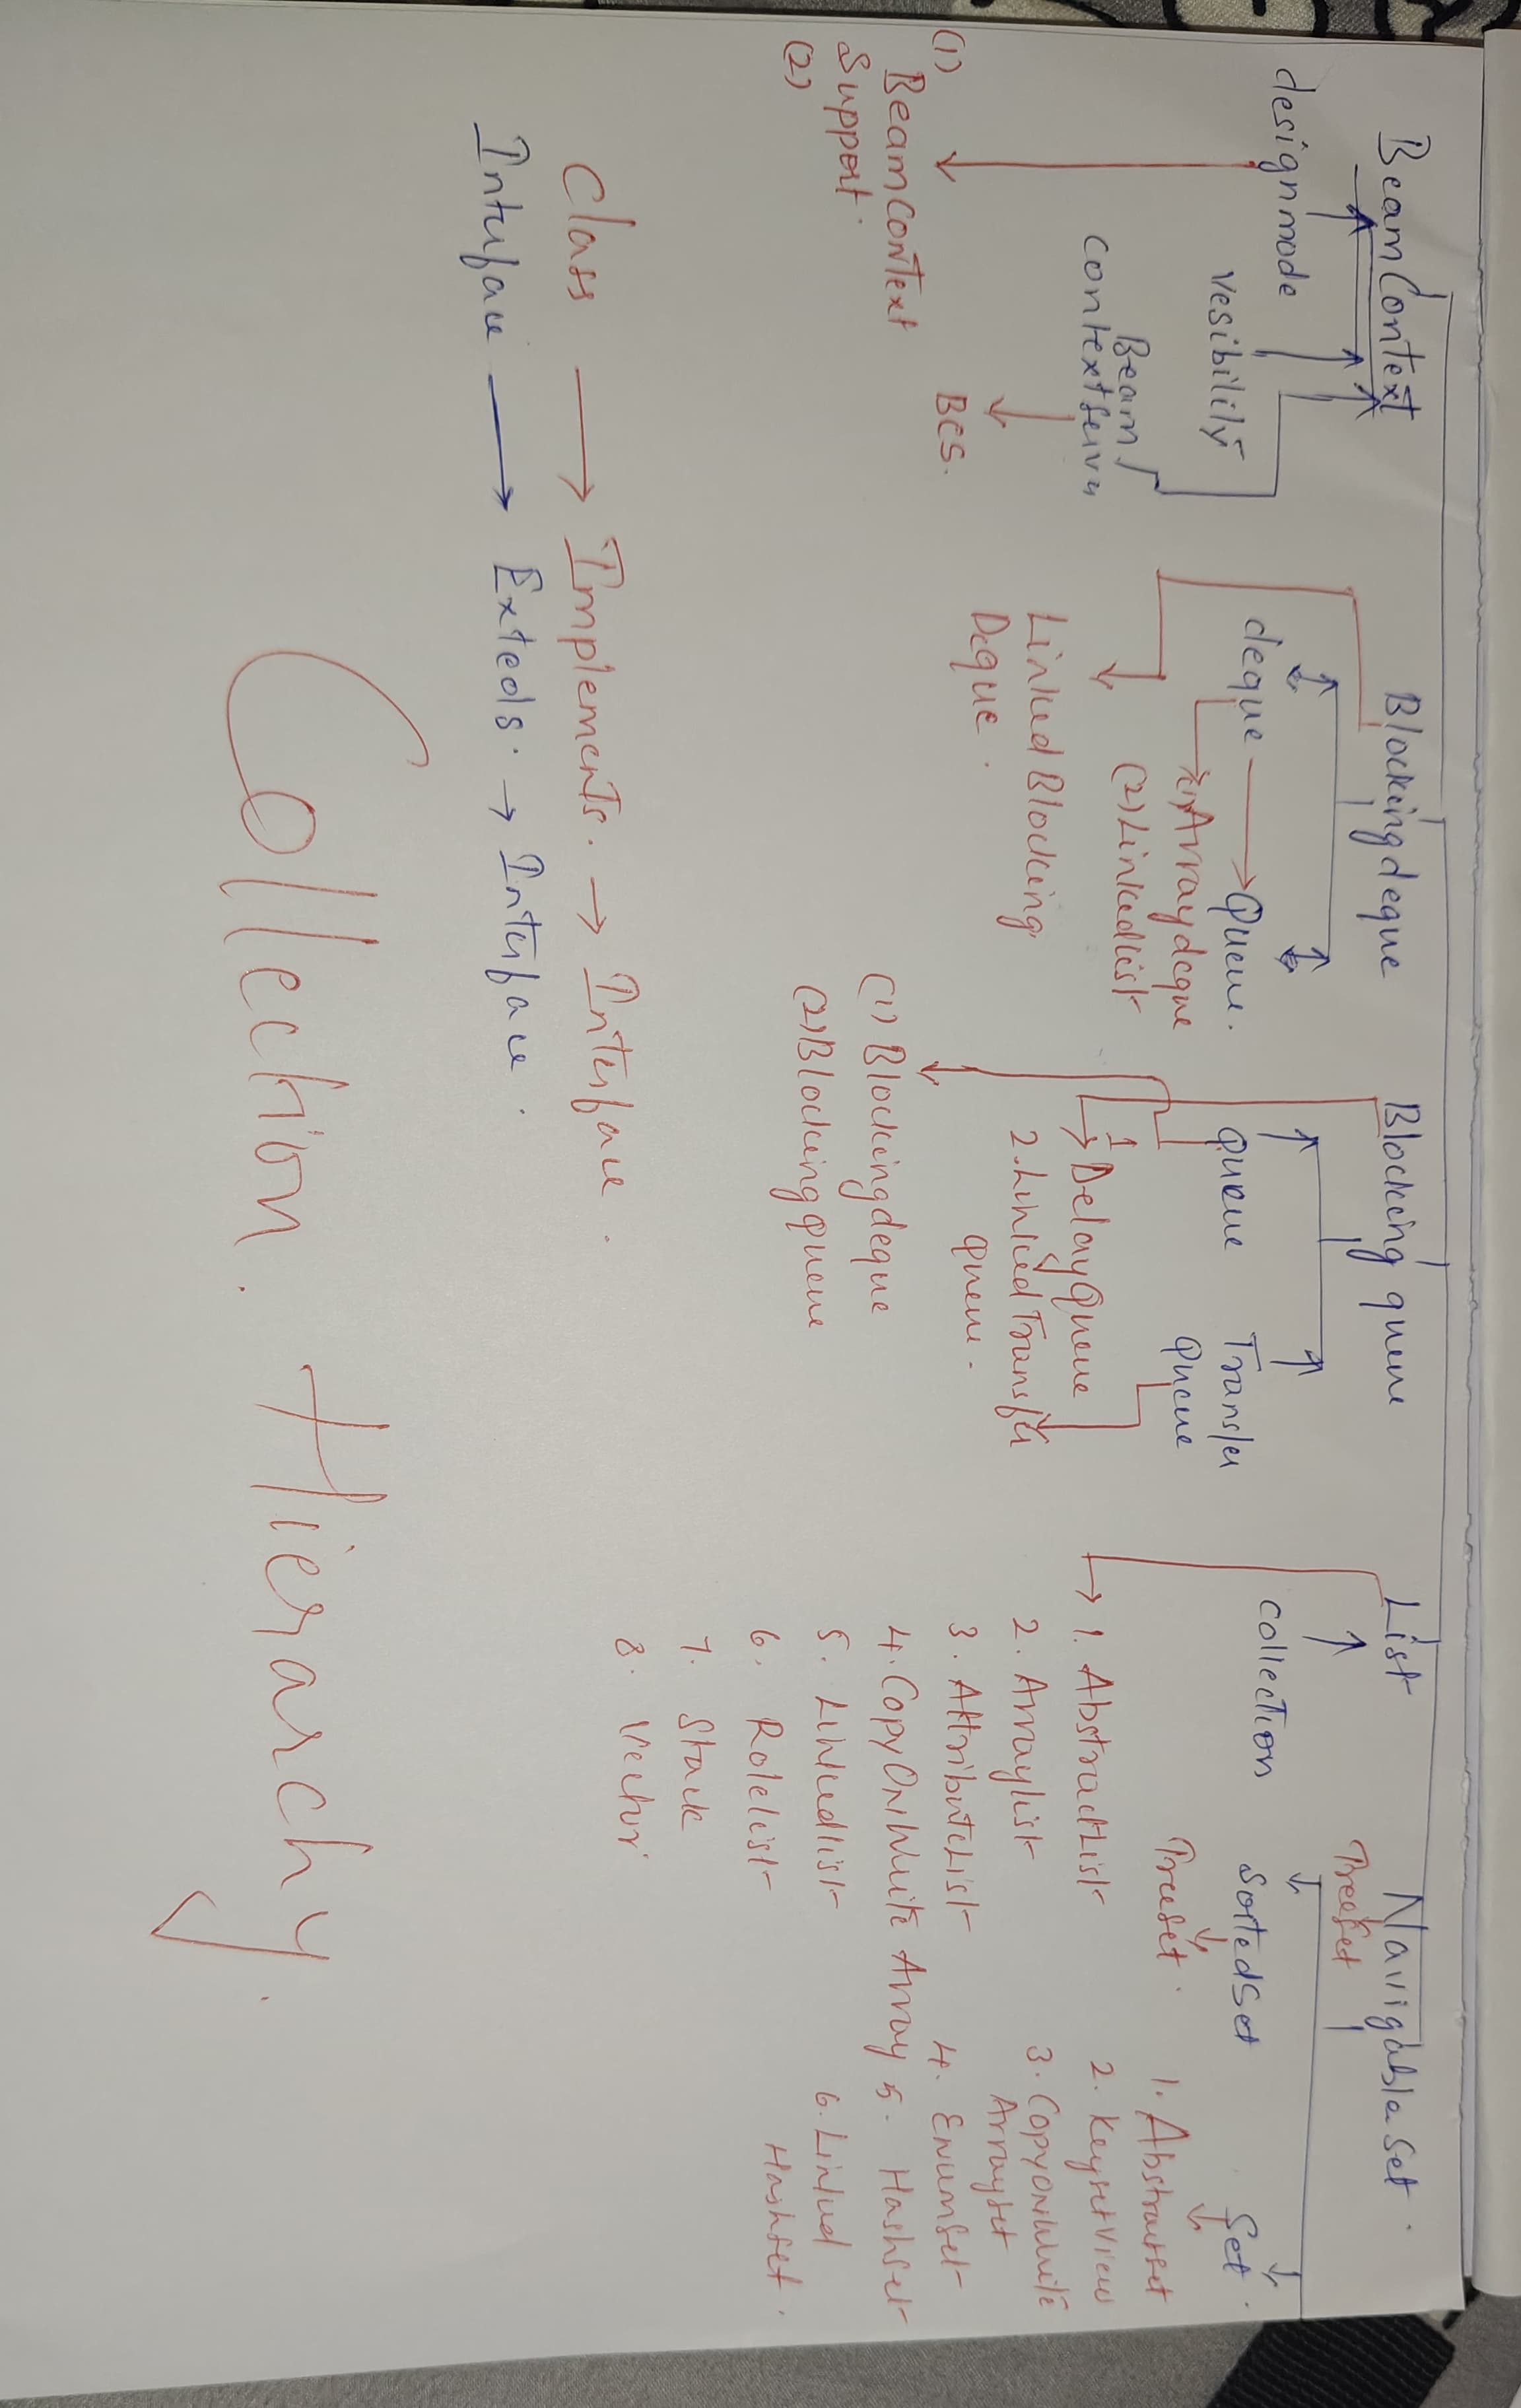 BeamContext
designmode
Vesibility
Beam
Contextserv
(1)
BeamContext
Support.
(2)
BCS.
Blockingdeque
deque
Queue.
(1) Arraydeque
(2) Linkedlist
LinkedBlocking
Deque.
Blocking queue
Queue
Transfer
Queue
1 DelayQueue
2. LinkedTransfer
Queue.
(1) Blockingdeque
(2) BlockingQueue
List
collection
1. AbstractList
2. Arraylist
3. AttributeList
4. CopyOnWrite Array
5. Linkedlist
6. Rolelist
7. Stack
8. Vector.
Navigable Set.
TreeSet
SortedSet
Treeset.
Set.
1. Abstractset
2. KeysetView
3. CopyOnWrite
Arrayset
4. EnumSet
5. HashSet
6. Linked
Hashset.
Class → Implements. → Interface.
Interface → Exteds. → Interface.
Collection. Hierarchy.